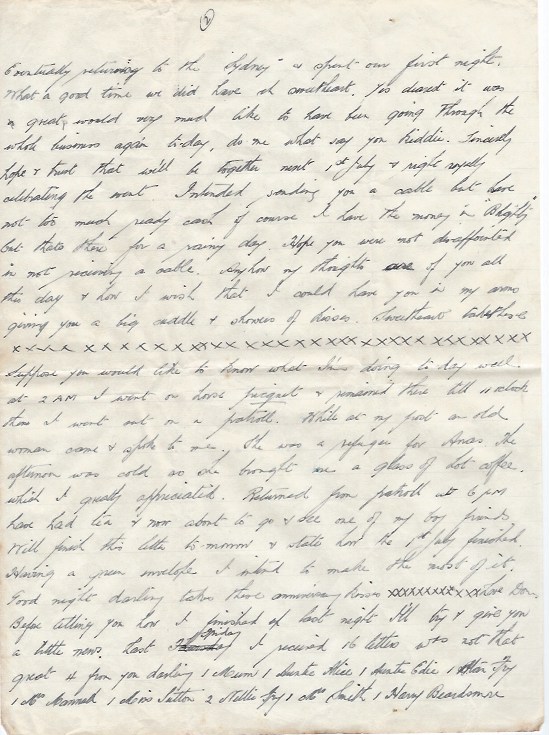 2
Eventually returning to the "Sydney" & spent our first night.
What a good time we did have eh sweetheart. Yes dearest it was
a great, would very much like to have been going through the
whole business again to-day, do me what say you Kiddie. Sincerely
hope & trust that we'll be together next 1st July & right royally
celebrating the event. Intended sending you a cable but have
not too much ready cash of course I have the money in "Blighty"
but thats there for a rainy day. Hope you were not disappointed
in not receiving a cable. Anyhow my thoughts are of you all
this day & how I wish that I could have you in my arms
giving you a big cuddle & showers of kisses. Sweetheart take these
x x x x x x x x x x x x x x x x x x x x x x x x x x x x x x
Suppose you would like to know what I'm doing to day well.
at 2 AM I went on horse picquet & remained there till 11 oclock
then I went out on a patroll. While at my post an old
woman came & spoke to me. She was a refugee from Arras the
afternoon was cold so she brought me a glass of hot coffee.
which I greatly appreciated. Returned from patroll at 6 pm
have had tea & now about to go & see one of my boy friends
Will finish this letter to-morrow & state how the 1st July finished.
Having a green envelope I intend to make the most of it.
Good night darling takes these anniversary kisses xxxxxxxxxxx Love Don.
Before telling you how I finished up last night I'll try & give you
a little news. Last Friday I received 16 letters was not that
great 4 from you darling 1 Mum 1 Auntie Alice 1 Auntie Edie 1 Fry
1 Mrs Mannah 1 Miss Sutton 2 Nellie Fry 1 Mrs Smith 1 Harry Beardsmore